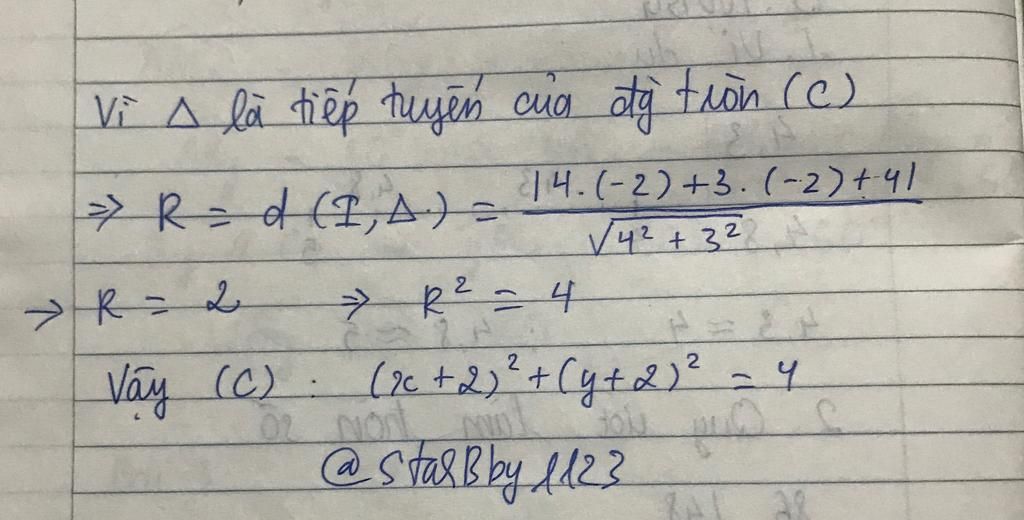 Vì Δ là tiếp tuyến của đg tròn (C)
=> R = d (I, Δ) = |4.(-2)+3.(-2)+4| / √4² + 3²
→ R = 2 => R² = 4
Vậy (C) : (x+2)² + (y+2)² = 4
@StarBby1123